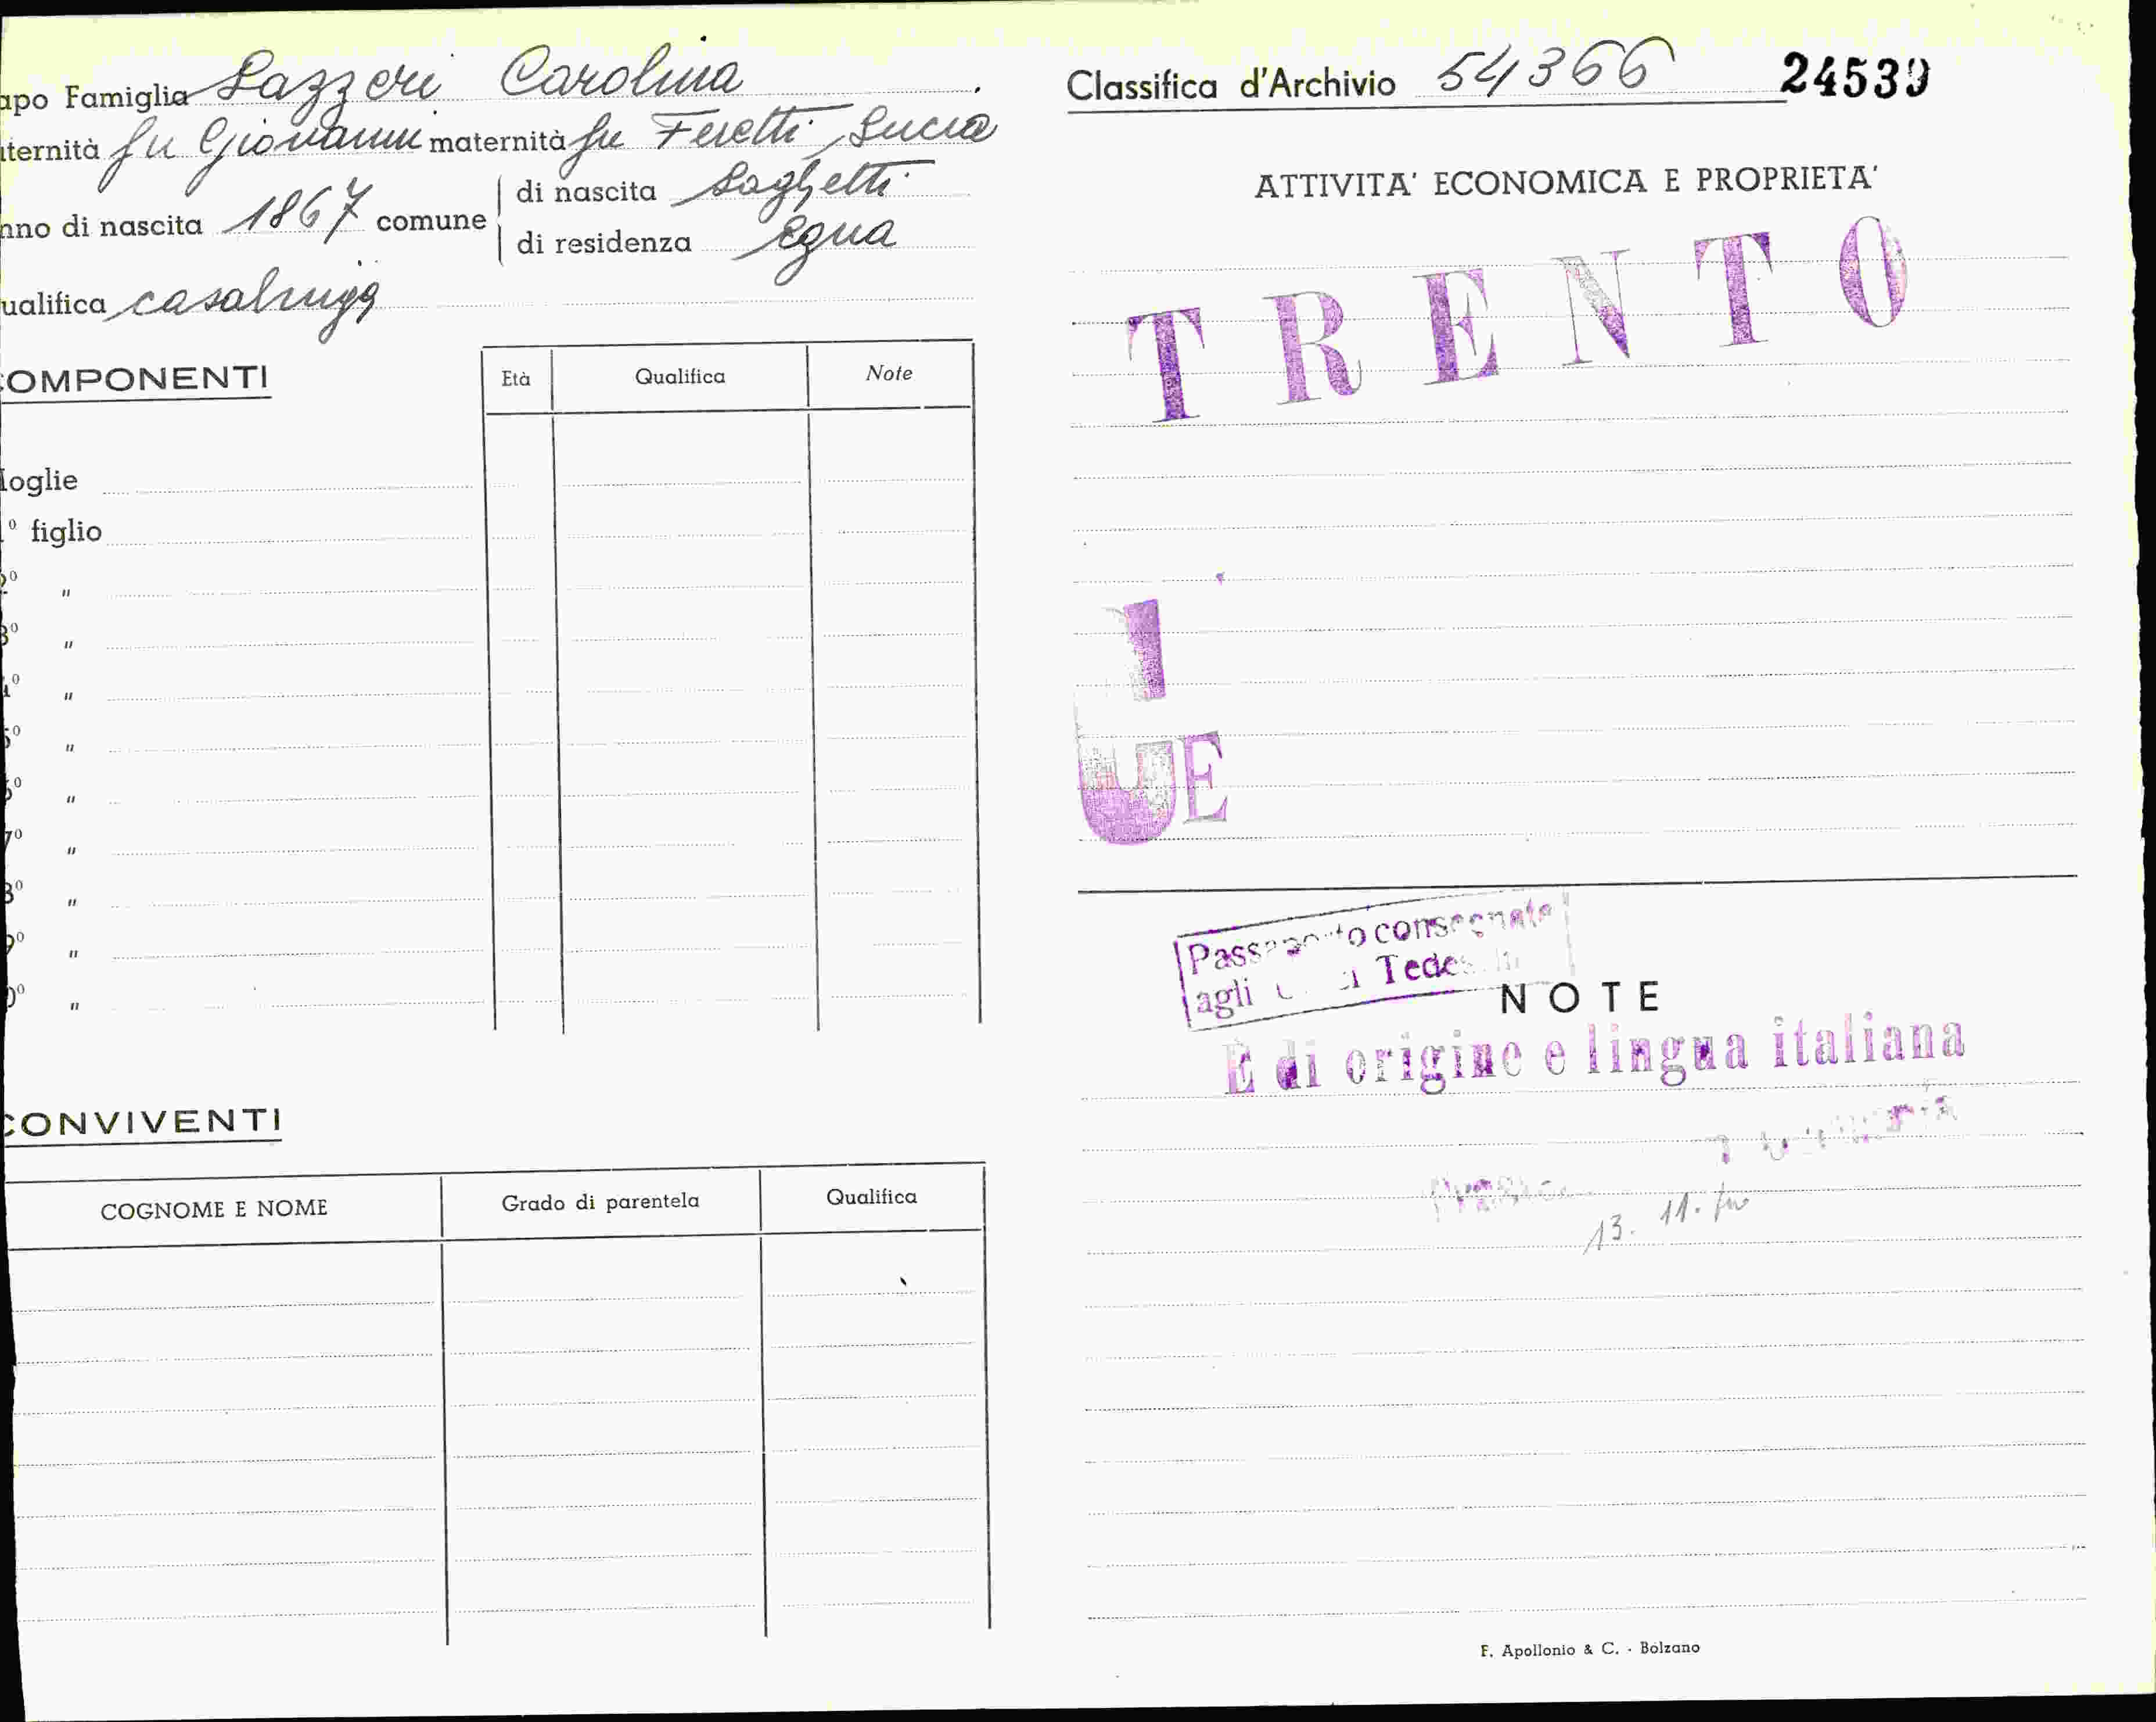 apo Famiglia Lazzeri Carolina
iternità fu Giovanni maternità fu Feretti Lucia
nno di nascita 1867 comune di nascita Laghetti
di residenza Egna
ualifica casalinga
COMPONENTI Età Qualifica Note
loglie
1º figlio
2º "
3º "
4º "
5º "
6º "
7º "
8º "
9º "
0º "
CONVIVENTI
COGNOME E NOME Grado di parentela Qualifica
Classifica d'Archivio 54366 24539
ATTIVITA' ECONOMICA E PROPRIETA'
TRENTO
I
UE
Passaporto consegnato
agli Tedeschi
NOTE
È di origine e lingua italiana
13. 11.
F. Apollonio & C. - Bolzano